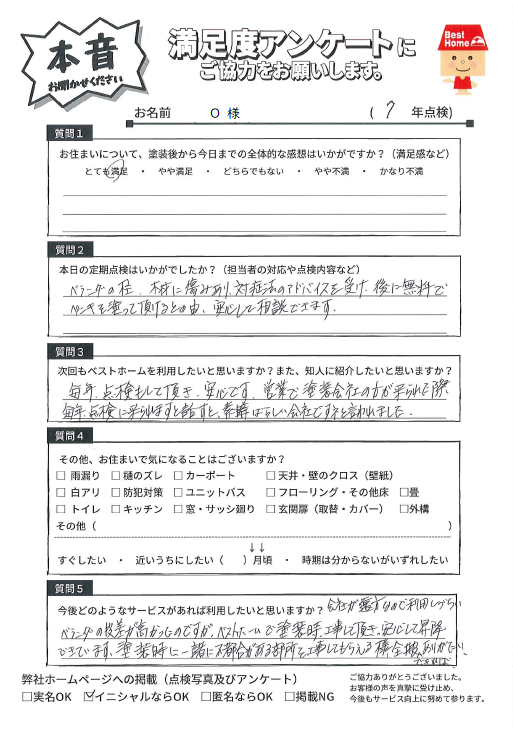 本音
お聞かせください
満足度アンケートに
ご協力をお願いします。
Best
Home
お名前 O 様 ( 7 年点検)
質問1
お住まいについて、塗装後から今日までの全体的な感想はいかがですか？（満足感など）
とても満足 ・ やや満足 ・ どちらでもない ・ やや不満 ・ かなり不満
質問2
本日の定期点検はいかがでしたか？（担当者の対応や点検内容など）
ベランダの 木材に傷みあり、対症法のアドバイスを受け、後に無料で
ペンキを塗って頂けるとの由、安心して相談できます。
質問3
次回もベストホームを利用したいと思いますか？また、知人に紹介したいと思いますか？
毎年、点検をして頂き、安心です。営業で塗装会社の方が来られて際、
毎年点検に来られますと話すと、素晴ばらしい会社ですネと言われました。
質問4
その他、お住まいで気になることはございますか？
□ 雨漏り □ 樋のズレ □ カーポート □ 天井・壁のクロス（壁紙）
□ 白アリ □ 防犯対策 □ ユニットバス □ フローリング・その他床 □畳
□ トイレ □ キッチン □ 窓・サッシ廻り □ 玄関扉（取替・カバー） □外構
その他（ ）
↓↓
すぐしたい ・ 近いうちにしたい（ ）月頃 ・ 時期は分からないがいずれしたい
質問5
今後どのようなサービスがあれば利用したいと思いますか？ 会社が なので利用しづらい
ベランダの段差が高かったのですが、ベストホームで塗装時、工事して頂き、安心して昇降
できています。塗装時に一諸に不都合がある部所を工事してもらえる機会 ありがたい。
できれば
弊社ホームページへの掲載（点検写真及びアンケート）
□実名OK ☑イニシャルならOK □匿名ならOK □掲載NG
ご協力ありがとうございました。
お客様の声を真摯に受け止め、
今後もサービス向上に努めて参ります。